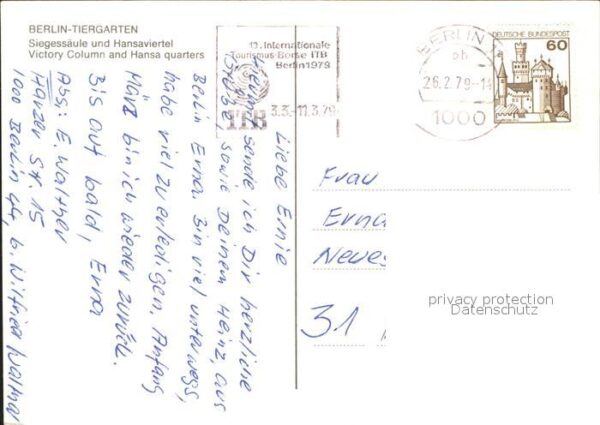 BERLIN-TIERGARTEN
Siegessäule und Hansaviertel
Victory Column and Hansa quarters
13. Internationale
Tourismus-Börse ITB
Berlin 1979
ITB
3.3.-11.3.79
BERLIN
26.2.79-14
1000
DEUTSCHE BUNDESPOST
60
Liebe Ernie
sende ich Dir herzliche
Grüße, sowie Deinem Heinz, aus
Berlin Erna. Bin viel unterwegs,
habe viel zu erledigen. Anfang
März bin ich wieder zurück.
Bis auf bald, Erna
Abs: E. Walther
Harzer Str. 15
1000 Berlin 44, b. Wilfried Walther
Frau
Erna
Neues
31
privacy protection
Datenschutz